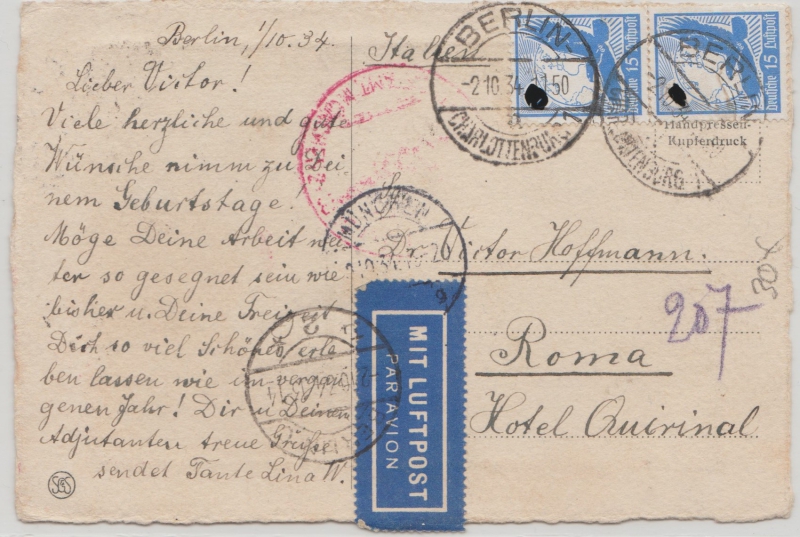 Berlin, 1/10.34.
Lieber Victor!
Viele herzliche und gute
Wünsche nimm zu Dei
nem Geburtstage!
Möge Deine Arbeit wei
ter so gesegnet sein wie
bisher u. Deine Freizeit
Dich so viel Schönes erle
ben lassen wie im vergan
genen Jahr! Dir u Deinen
Adjutanten treue Grüße
sendet Tante Lina W.
Italien
BERLIN-
-2.10.34.11-50
CHARLOTTENBURG
Deutsche 15 Luftpost
Deutsche 15 Luftpost
BERLIN
CHARLOTTENBURG
Handpressen-
Kupferdruck
MÜNCHEN
Dr. Victor Hoffmann.
Roma
Hotel Quirinal
207
MIT LUFTPOST
PAR AVION